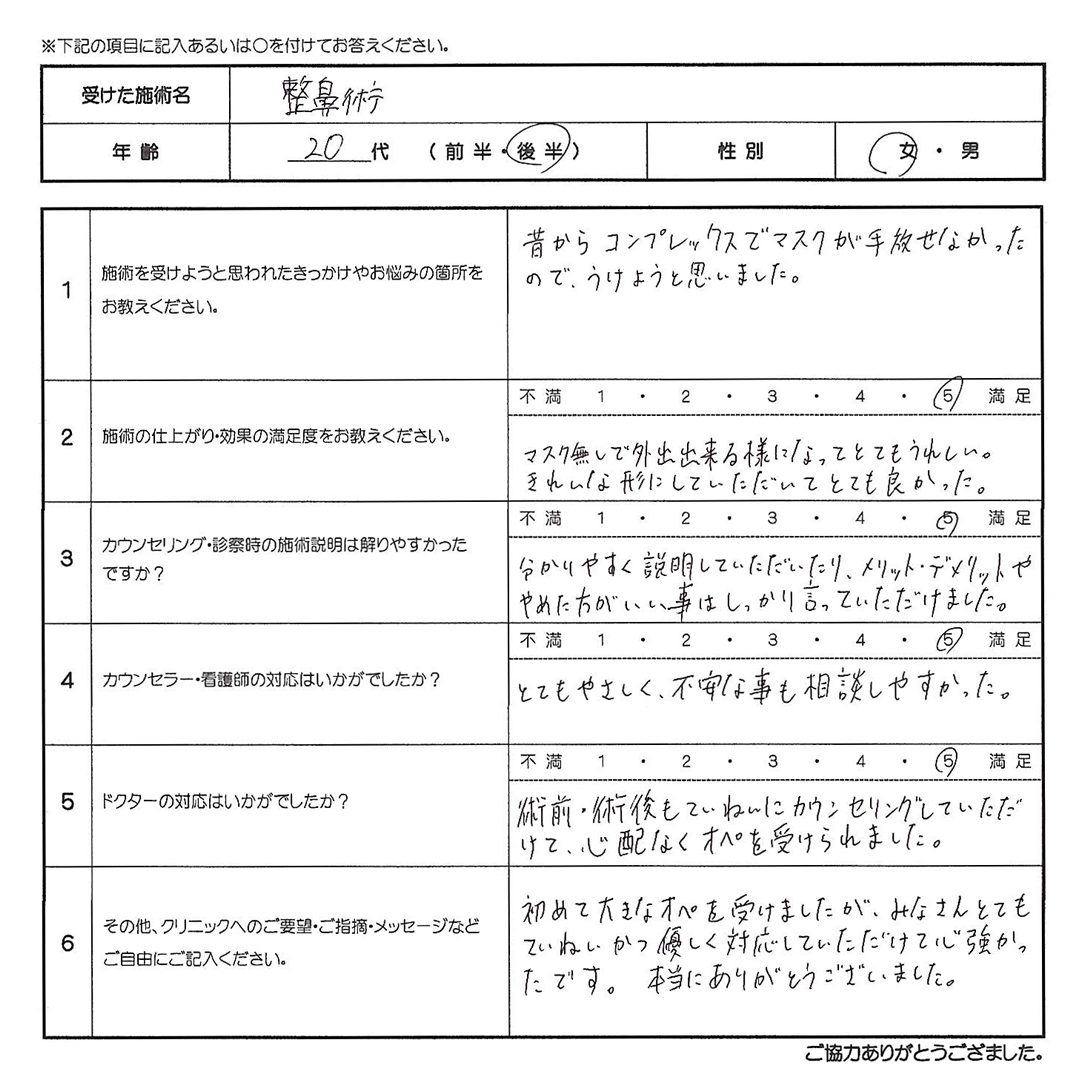 ※下記の項目に記入あるいは〇を付けてお答えください。
受けた施術名 整鼻術
年齢 20代 (前半・後半) 性別 女・男
1 施術を受けようと思われたきっかけやお悩みの箇所を
お教えください。
昔からコンプレックスでマスクが手放せなかった
ので、うけようと思いました。
2 施術の仕上がり・効果の満足度をお教えください。
不満 1 ・ 2 ・ 3 ・ 4 ・ 5 満足
マスク無しで外出出来る様になってとてもうれしい。
きれいな形にしていただいてとても良かった。
3 カウンセリング・診察時の施術説明は解りやすかった
ですか?
不満 1 ・ 2 ・ 3 ・ 4 ・ 5 満足
分かりやすく説明していただいたり、メリット・デメリットや
やめた方がいい事はしっかり言っていただけました。
4 カウンセラー・看護師の対応はいかがでしたか?
不満 1 ・ 2 ・ 3 ・ 4 ・ 5 満足
とてもやさしく、不安な事も相談しやすかった。
5 ドクターの対応はいかがでしたか?
不満 1 ・ 2 ・ 3 ・ 4 ・ 5 満足
術前・術後もていねいにカウンセリングしていただ
けて、心配なくオペを受けられました。
6 その他、クリニックへのご要望・ご指摘・メッセージなど
ご自由にご記入ください。
初めて大きなオペを受けましたが、みなさんとても
ていねいかつ優しく対応していただけて心強かっ
たです。 本当にありがとうございました。
ご協力ありがとうござました。